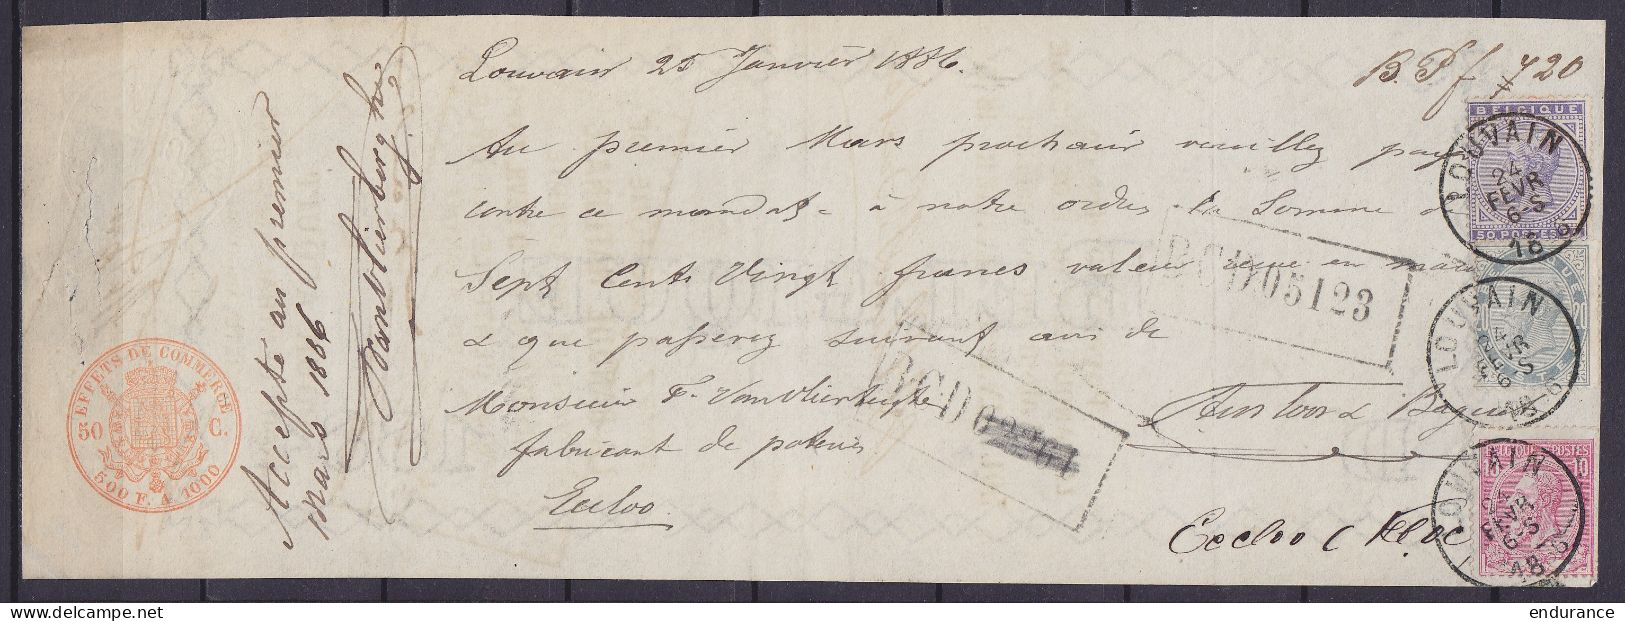 Louvain 25 Janvier 1886.
B.P f 720
Au premier Mars prochain veuillez pay
contre ce mandat à notre ordre la Somme d
Sept Cents Vingt francs valeur reçue en
& que passerez suivant avis de
Monsieur F. Van Vlierberghe
fabricant de
Eecloo
Eecloo
Accepté au premier
Mars 1886
Van Vlierberghe
EFFETS DE COMMERCE
50 C.
500 F. A 1000
BCD05123
BCD0
BELGIQUE
50 POSTES
LOUVAIN
24
FEVR
6-S
18 6
LOUVAIN
FEVR
6-S
18 6
BELGIQUE POSTES
10
LOUVAIN
24
FEVR
6-S
18 6
delcampe.net
endurance